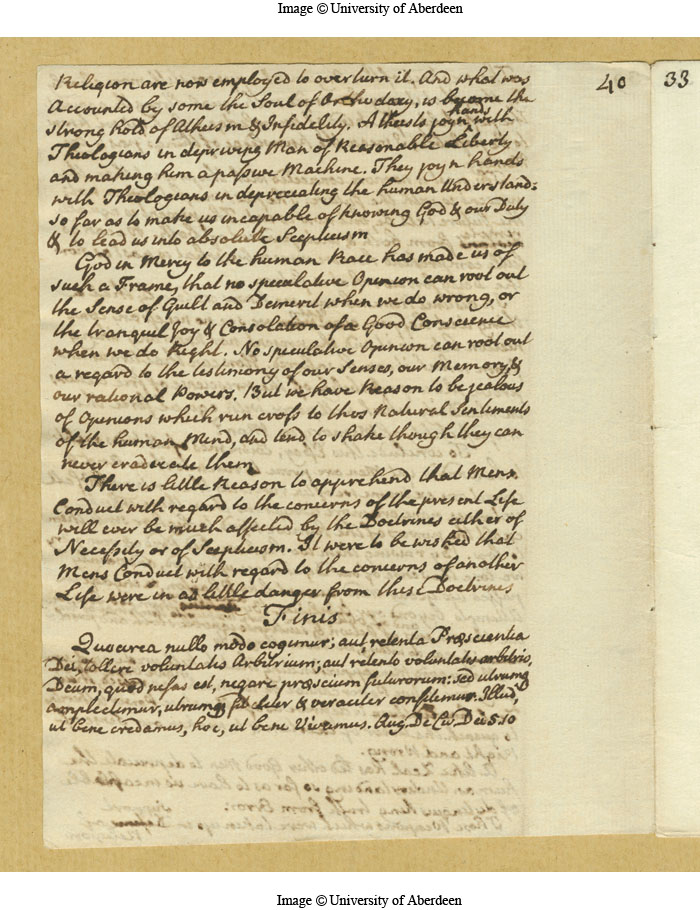 Image © University of Aberdeen
40
33
Religion are now employed to overturn it. And what was
Accounted by some the Soul of Orthodoxy, is become the
strong hold of Atheism & Infidelity. Atheists joyn hands with
Theologians in depriving Man of Reasonable Liberty
and making him a passive Machine. They joyn hands
with Theologians in depreciating the human Understand:
so far as to make us incapable of knowing God & our Duty
& to lead us into absolute Scepticism
God in Mercy to the human Race has made us of
such a Frame, that no speculative Opinion can root out
the Sense of Guilt and Demerit when we do wrong, or
the tranquil Joy & Consolation of a Good Conscience
when we do Right. No speculative Opinion can root out
a regard to the testimony of our Senses, our Memory &
our rational Powers. But we have Reason to be jealous
of Opinions which run cross to thos Natural Sentiments
of the human Mind, and tend to shake though they can
never eradicate them
There is little Reason to apprehend that Mens
Conduct with regard to the concerns of the present Life
will ever be much affected by the Doctrines either of
Necessity or of Scepticism. It were to be wished that
Mens Conduct with regard to the concerns of another
Life were in as little danger from these Doctrines
Finis
Quocirca nullo modo cogimur; aut retenta Præscientia
Dei, tollere voluntatis Arbitrium; aut retento voluntatis arbitrio,
Deum, quod nefas est, negare præscium futurorum: sed utrumq
amplectimur, utrumq fideliter & veraciter confitemur. Illud,
ut bene credamus, hoc, ut bene Vivamus. Aug. De Civ. Dei 5.10
Image © University of Aberdeen